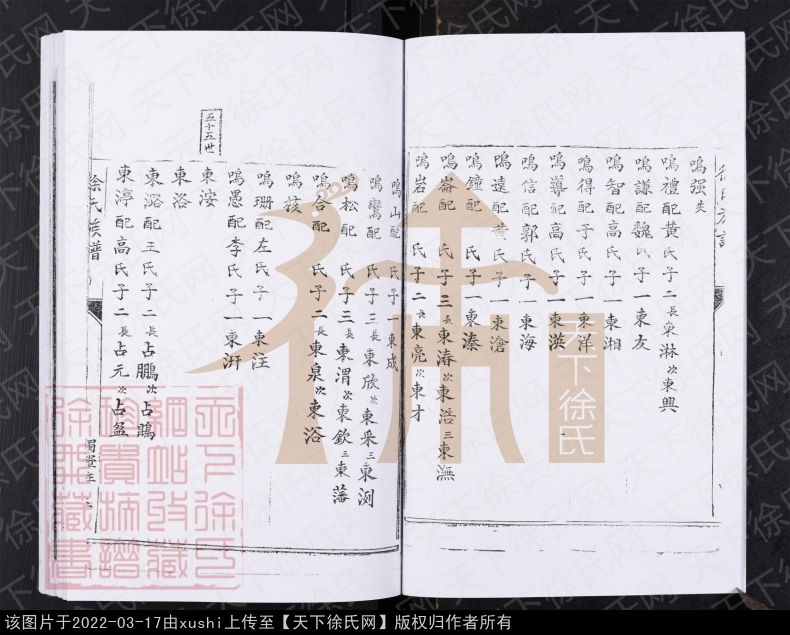 鳴強失
鳴禮配黄氏子二長東淋次東興
鳴謙配魏氏子一東友
鳴智配高氏子一東湘
鳴得配子氏子一東洋
鳴導配高氏子一東淇
鳴信配郭氏子一東海
鳴遠配黄氏子一東滄
鳴鐘配 氏子一東溱
鳴崙配 氏子三長東濤次東浩三東潕
鳴岩配 氏子二长東亮次東才
鳴山配 氏子一東成
鳴鸞配 氏子三長東欣次東采三東渕
鳴松配 氏子三長東渭次東欽三東藩
鳴合配 氏子二長東泉次東浴
鳴核
鳴珊配左氏子一東注
鳴愚配李氏子一東汧
五十五世
東洝
東浴
東潞配王氏子二長占鵬次占鵰
東渟配高氏子二長占元次占盈
徐氏族譜
天下徐氏
天下徐氏网
该图片于2022-03-17由xushi上传至【天下徐氏网】版权归作者所有